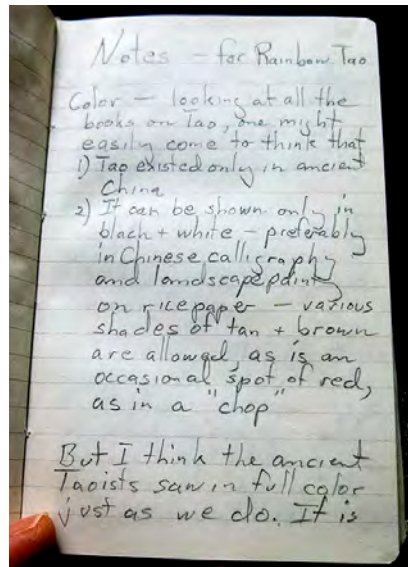 Notes - for Rainbow Tao
Color - looking at all the
books on Tao, one might
easily come to think that
1) Tao existed only in ancient
China
2) It can be shown only in
black + white - preferably
in Chinese calligraphy
and landscape painting
on rice paper - various
shades of tan + brown
are allowed, as is an
occasional spot of red,
as in a "chop"
But I think the ancient
Taoists saw in full color
just as we do. It is